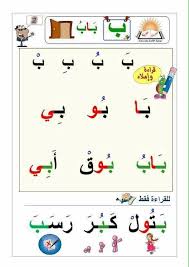 ب بَابُ
بَ بُ بِ بْ
قراءة وإملاء
بَا بُو بِي
بَابُ بُوقْ أَبِي
للقراءة فقط
بَتُولْ كَبُرَ رَسَبَ